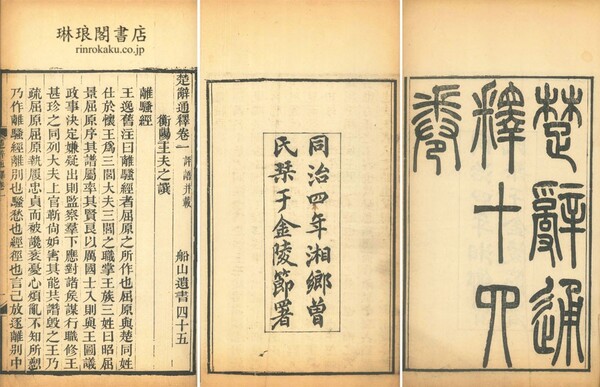 琳琅閣書店
rinrokaku.co.jp
楚辭通
釋十四
卷
同治四年湘鄉曾
氏栞于金陵節署
楚辭通釋卷一 船山遺書四十五
衡陽王夫之譔
離騷經
王逸舊注曰離騷經者屈原之所作也屈原與楚同姓
仕於懷王爲三閭大夫三閭之職掌王族三姓曰昭屈
景屈原序其譜屬率其賢良以厲國士入則與王圖議
政事決定嫌疑出則監察羣下應對諸矦謀行職修王
甚珍之同列大夫上官靳尚妒害其能共譖毀之王乃
疏屈原屈原執履忠貞而被讒衺憂心煩亂不知所愬
乃作離騷經離別也騷愁也經徑也言己放逐離別中